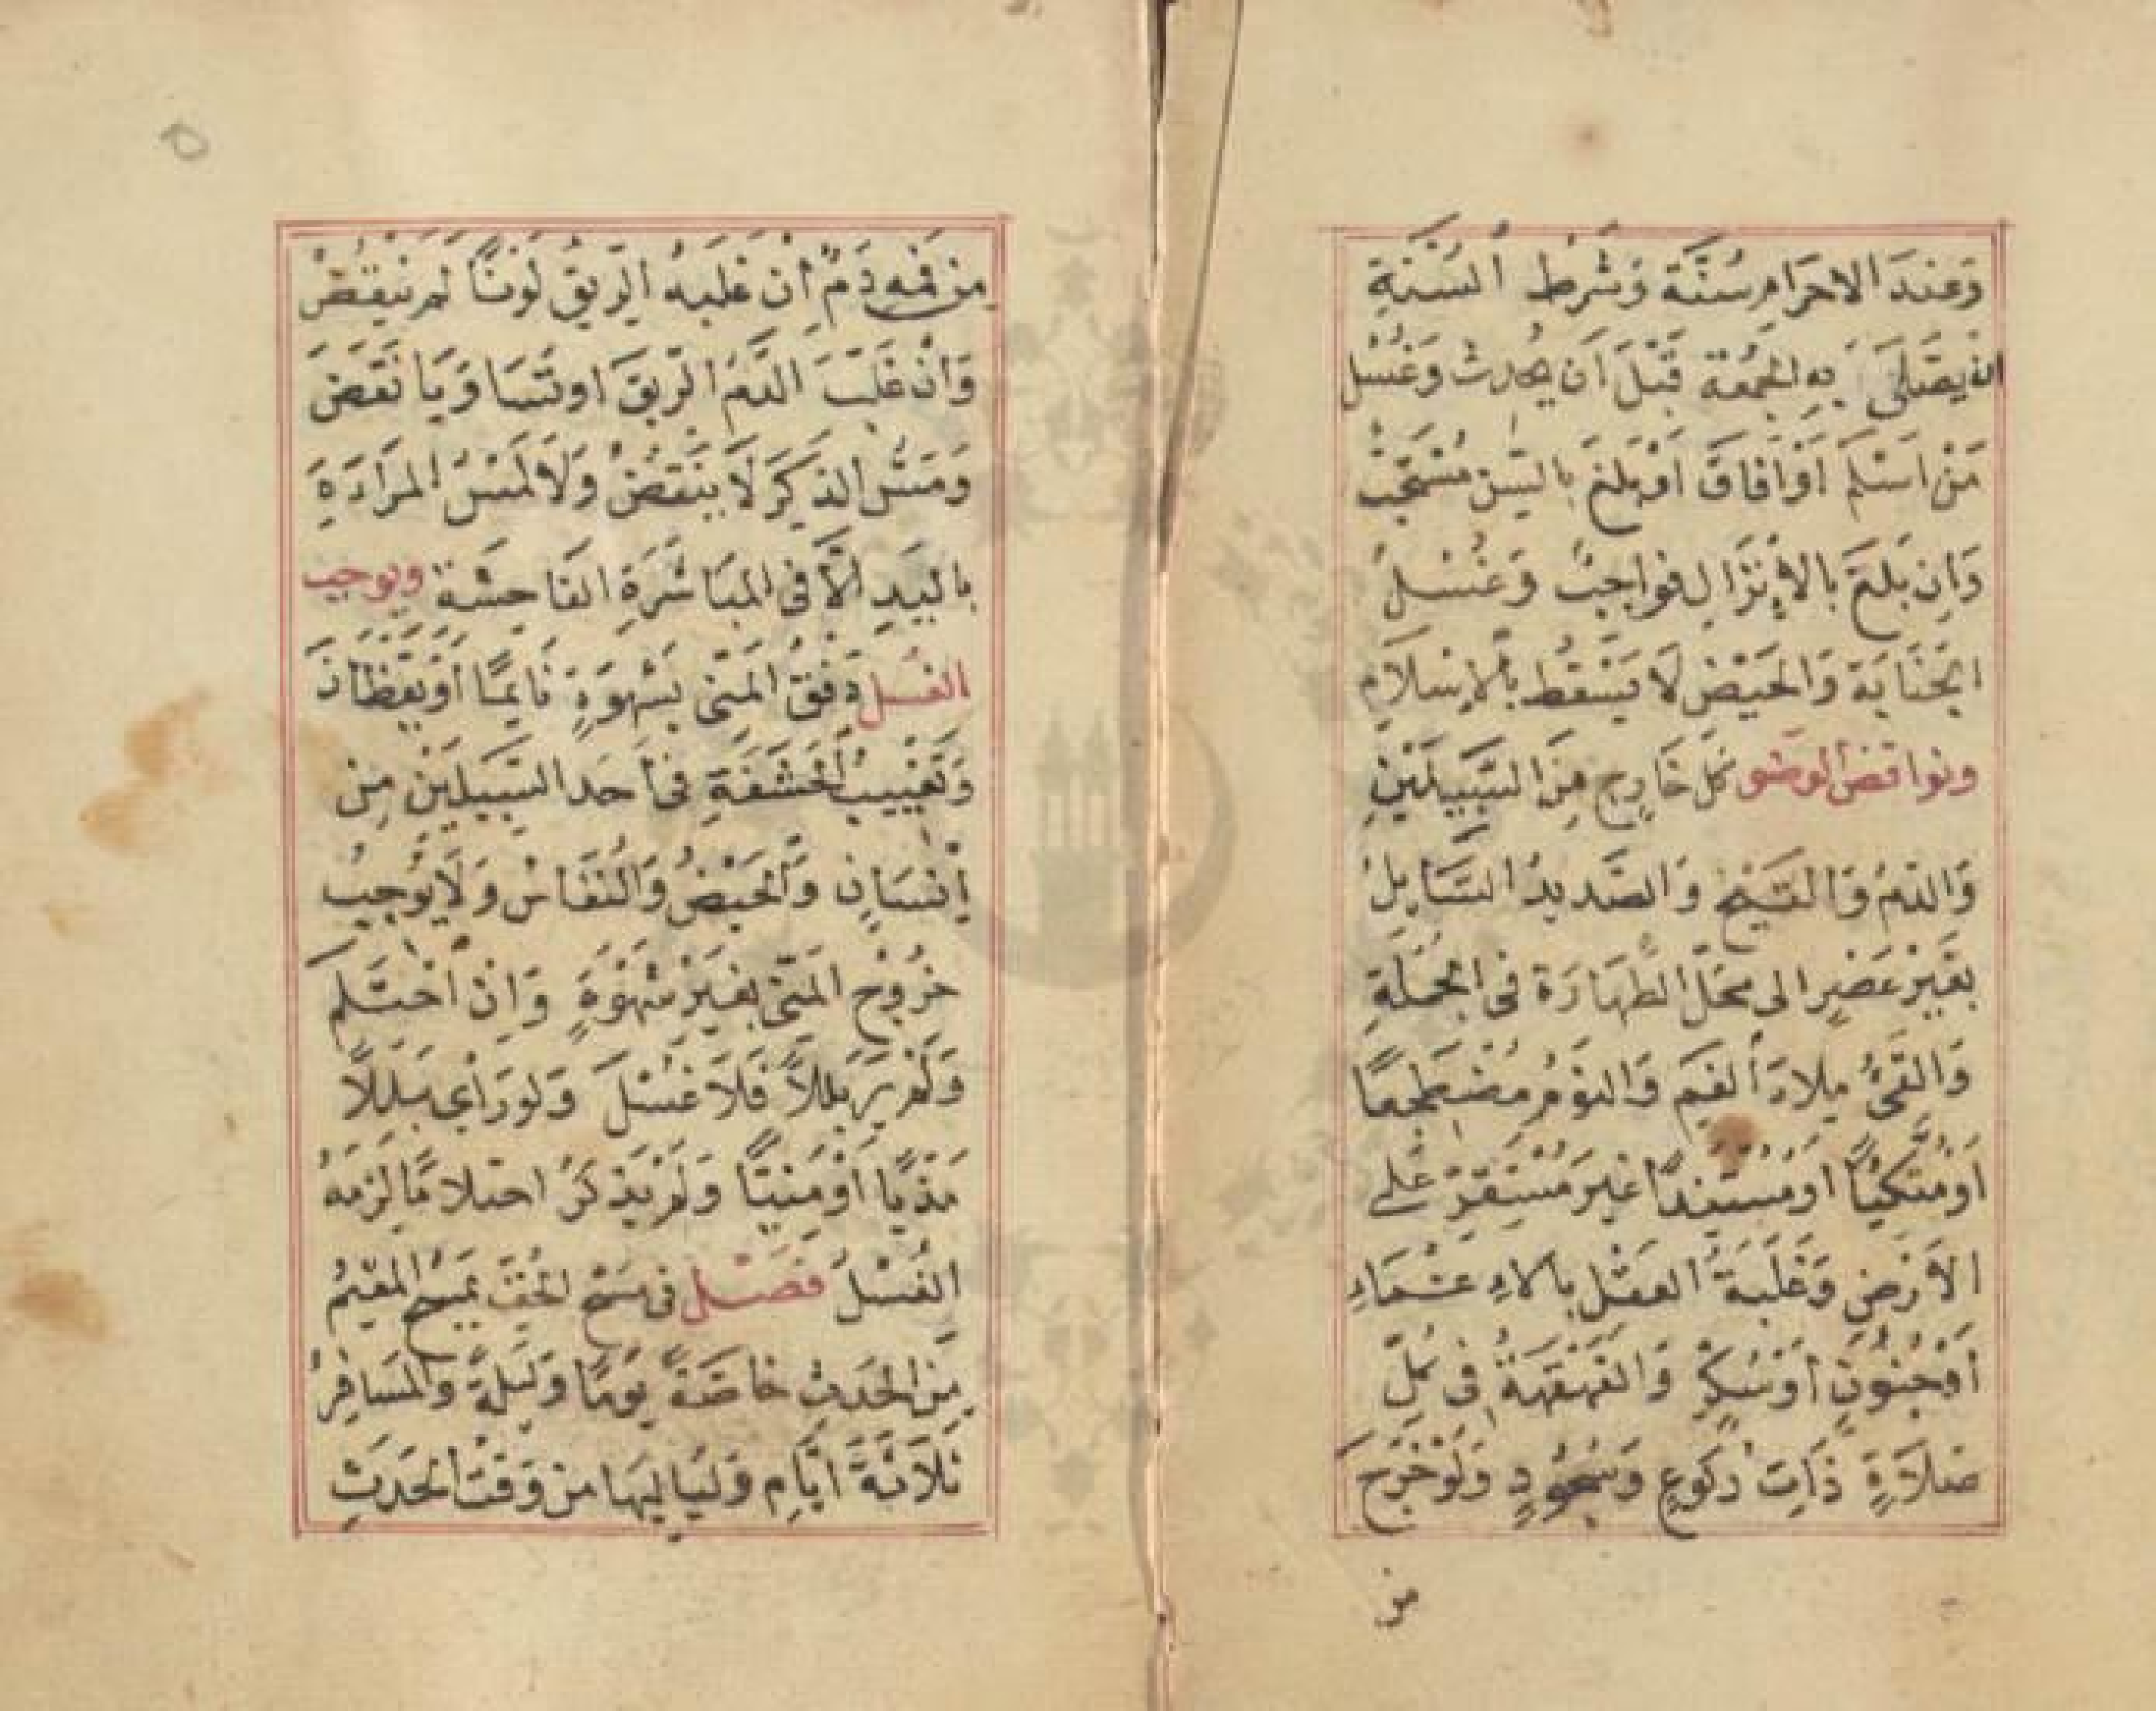 وَعِندَ الاحرَامِ سُنَّة وَشَرطُ السُنَّةِ
ان يصَلىَ بهِ الجمُعَة قَبْلَ اَن يحُدث وَغسُل
مَنْ اَسْلَمَ اَوْ اَفاقَ اَوْ بلغَ بالسِّنِ مُسْتَحَبٌ
وَاِن بَلَغَ بالاِنزَالِ فواجبٌ وَغُسْلُ
الجَنَابَة وَالحَيْضِ لاَ يَسْقُط بالاِسْلاَمِ
ونواقض الوضو كل خَارِج مِنَ السَّبِيلَيْنِ
وَالدَمُ وَالقَيْحُ وَالصَّدِيدُ السَّايِلُ
بغَيْرِ عَصْرٍ الى محَلّ الطَّهَارَة فى الجُمْلَةِ
وَالقَىُ مِلادَ الفَمِ وَالنوْمُ مُضْطَجعًا
اَوْ مُتَّكِئًا اَوْ مُسْتَنِدًا غيرَ مُسْتَقِرّ عَلى
الاَرْضِ وَغَلَبَةُ العَقْلِ بالاِغمَاءِ
اَوْ جُنُونٍ اَوْ سُكْرٍ وَالقَهْقَهَةُ فى كُلِّ
صَلاَةٍ ذَاتِ رُكوُعٍ وَسُجُودٍ وَلَوْ خَرَجَ
من
٥
مِن فمِه دَمٌ اِن غلبَهُ الرّيقُ لَونًا لم يَنقُضْ
وَاِن غَلَبَ الدَّمُ الرّيقَ اَو تَسَاوَيَا نَقَضَ
وَمَسُّ الذكَرَ لاَ يَنقُضُ وَلاَ لمَسُ المَرادَةِ
باليَدِ اِلاَّ فى المبَاشَرَةِ الفَاحِشَة ويوجب
الغسل دَفقُ المَنِىّ بشَهْوَةٍ نَايمًا اَوْ يَقْظَانَ
وَتَغْيِيبُ الحَشَفَةِ فى اَحَد السَّبِيلَيْنِ مِن
اِنسَانٍ وَالحَيْضُ وَالنُفَاسُ وَلاَ يُوجِبُ
خرُوُجُ المَنىّ بغَيرِ شَهْوَةٍ وَاِنْ احْتَلَم
وَلَمْ يَرَ بَلَلاً فَلاَ غسُل وَلو رَأى بَلَلاً
مَذْيًا اَوْ مَنِيًّا وَلَمْ يَذكَرُ احتلامًا لَزِمَهُ
الغُسْلُ فصَل فى مَسْحِ الخُفّ يمَسْحُ المقيمُ
مِنَ الحَدَثِ خاصَّةً يَومًا وَلَيلَةً وَالمسَافِرُ
ثلاَثَةَ اَيَّامٍ وَليَالِيهَا مِن وَقْتِ الحَدَثِ